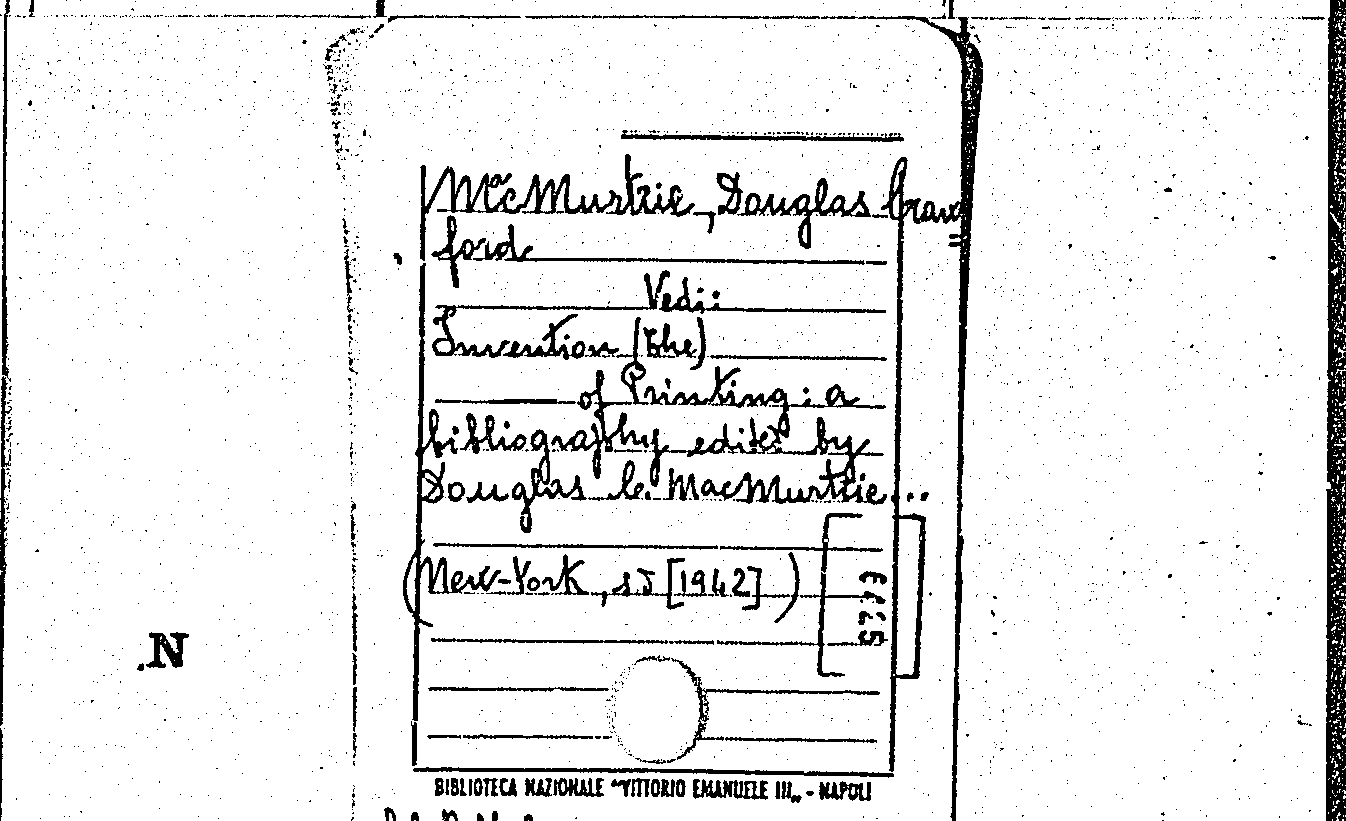 McMurtrie, Douglas Craw=
ford
Vedi:
Invention (The)
of Printing: a
bibliography edited by
Douglas C. MacMurtrie...
(New-York, s.d. [1942])
.N
BIBLIOTECA NAZIONALE "VITTORIO EMANUELE III„ - NAPOLI